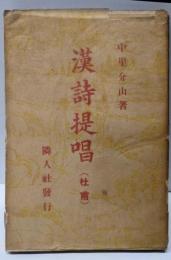 中里介山著
漢詩提唱
(杜甫)
隣人社發行